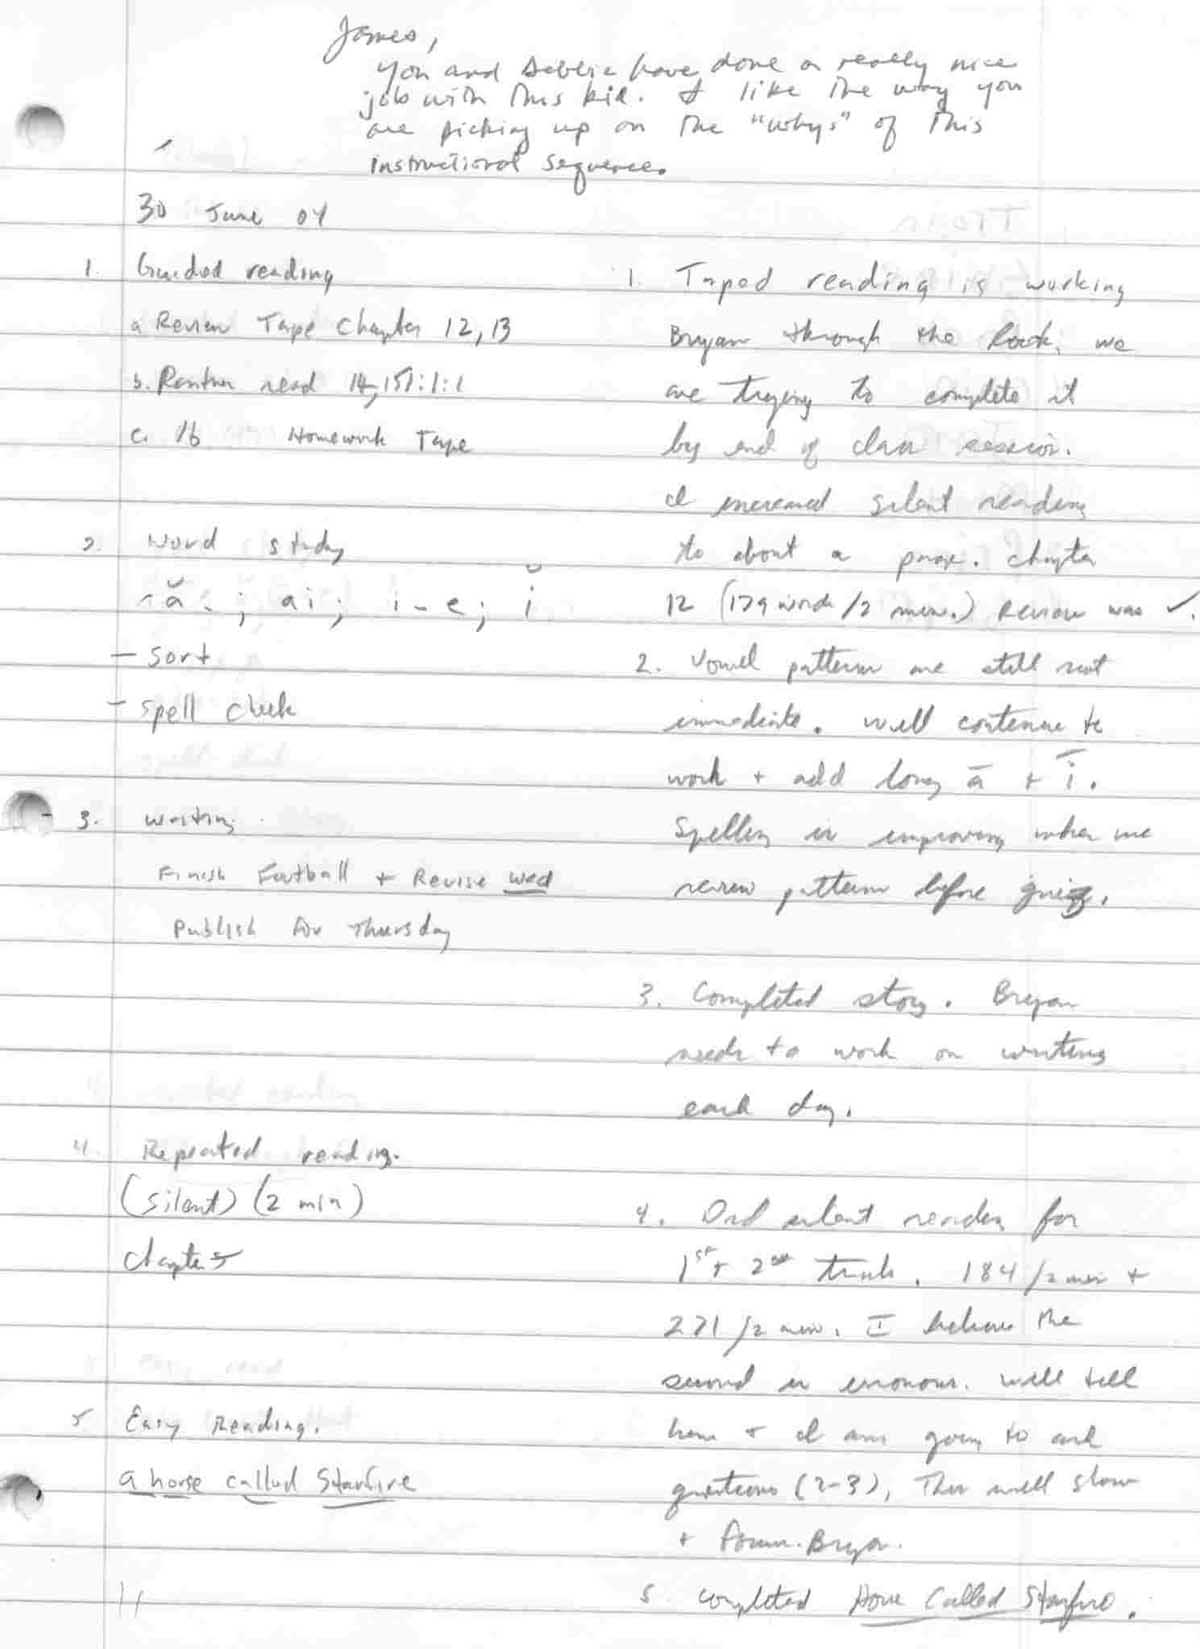 James,
You and Debbie have done a really nice
job with this kid. I like the way you
are picking up on the "whys" of this
instructional sequence.
30 June 04
1. Guided reading
a Review Tape Chapter 12, 13
b. Partner read 14, 15 1:1:1
c. 16 Homework Tape
2. Word study
ă ; ai ; i-e ; ĭ
- sort
- spell check
3. Writing
Finish Football + Revise Wed
Publish for Thursday
4. Repeated reading.
(silent) (2 min)
Chapter 5
5 Easy Reading.
a horse called Starfire
1. Taped reading is working
Bryan through the book. We
are trying to complete it
by end of class session.
I increased silent reading
to about a page. Chapter
12 (179 words/2 min.) Review was ✓.
2. Vowel patterns are still not
immediate. Will continue to
work + add long ā + ī.
Spelling is improving when we
review patterns before
3. Completed story. Bryan
needs to work on writing
each day.
4. Did silent reading for
1st + 2nd trials. 184/2 min +
271/2 min. I believe the
second is erroneous. Will tell
him I am going to ask
questions (2-3), This will slow
+ focus Bryan.
5 completed Horse Called Starfire.